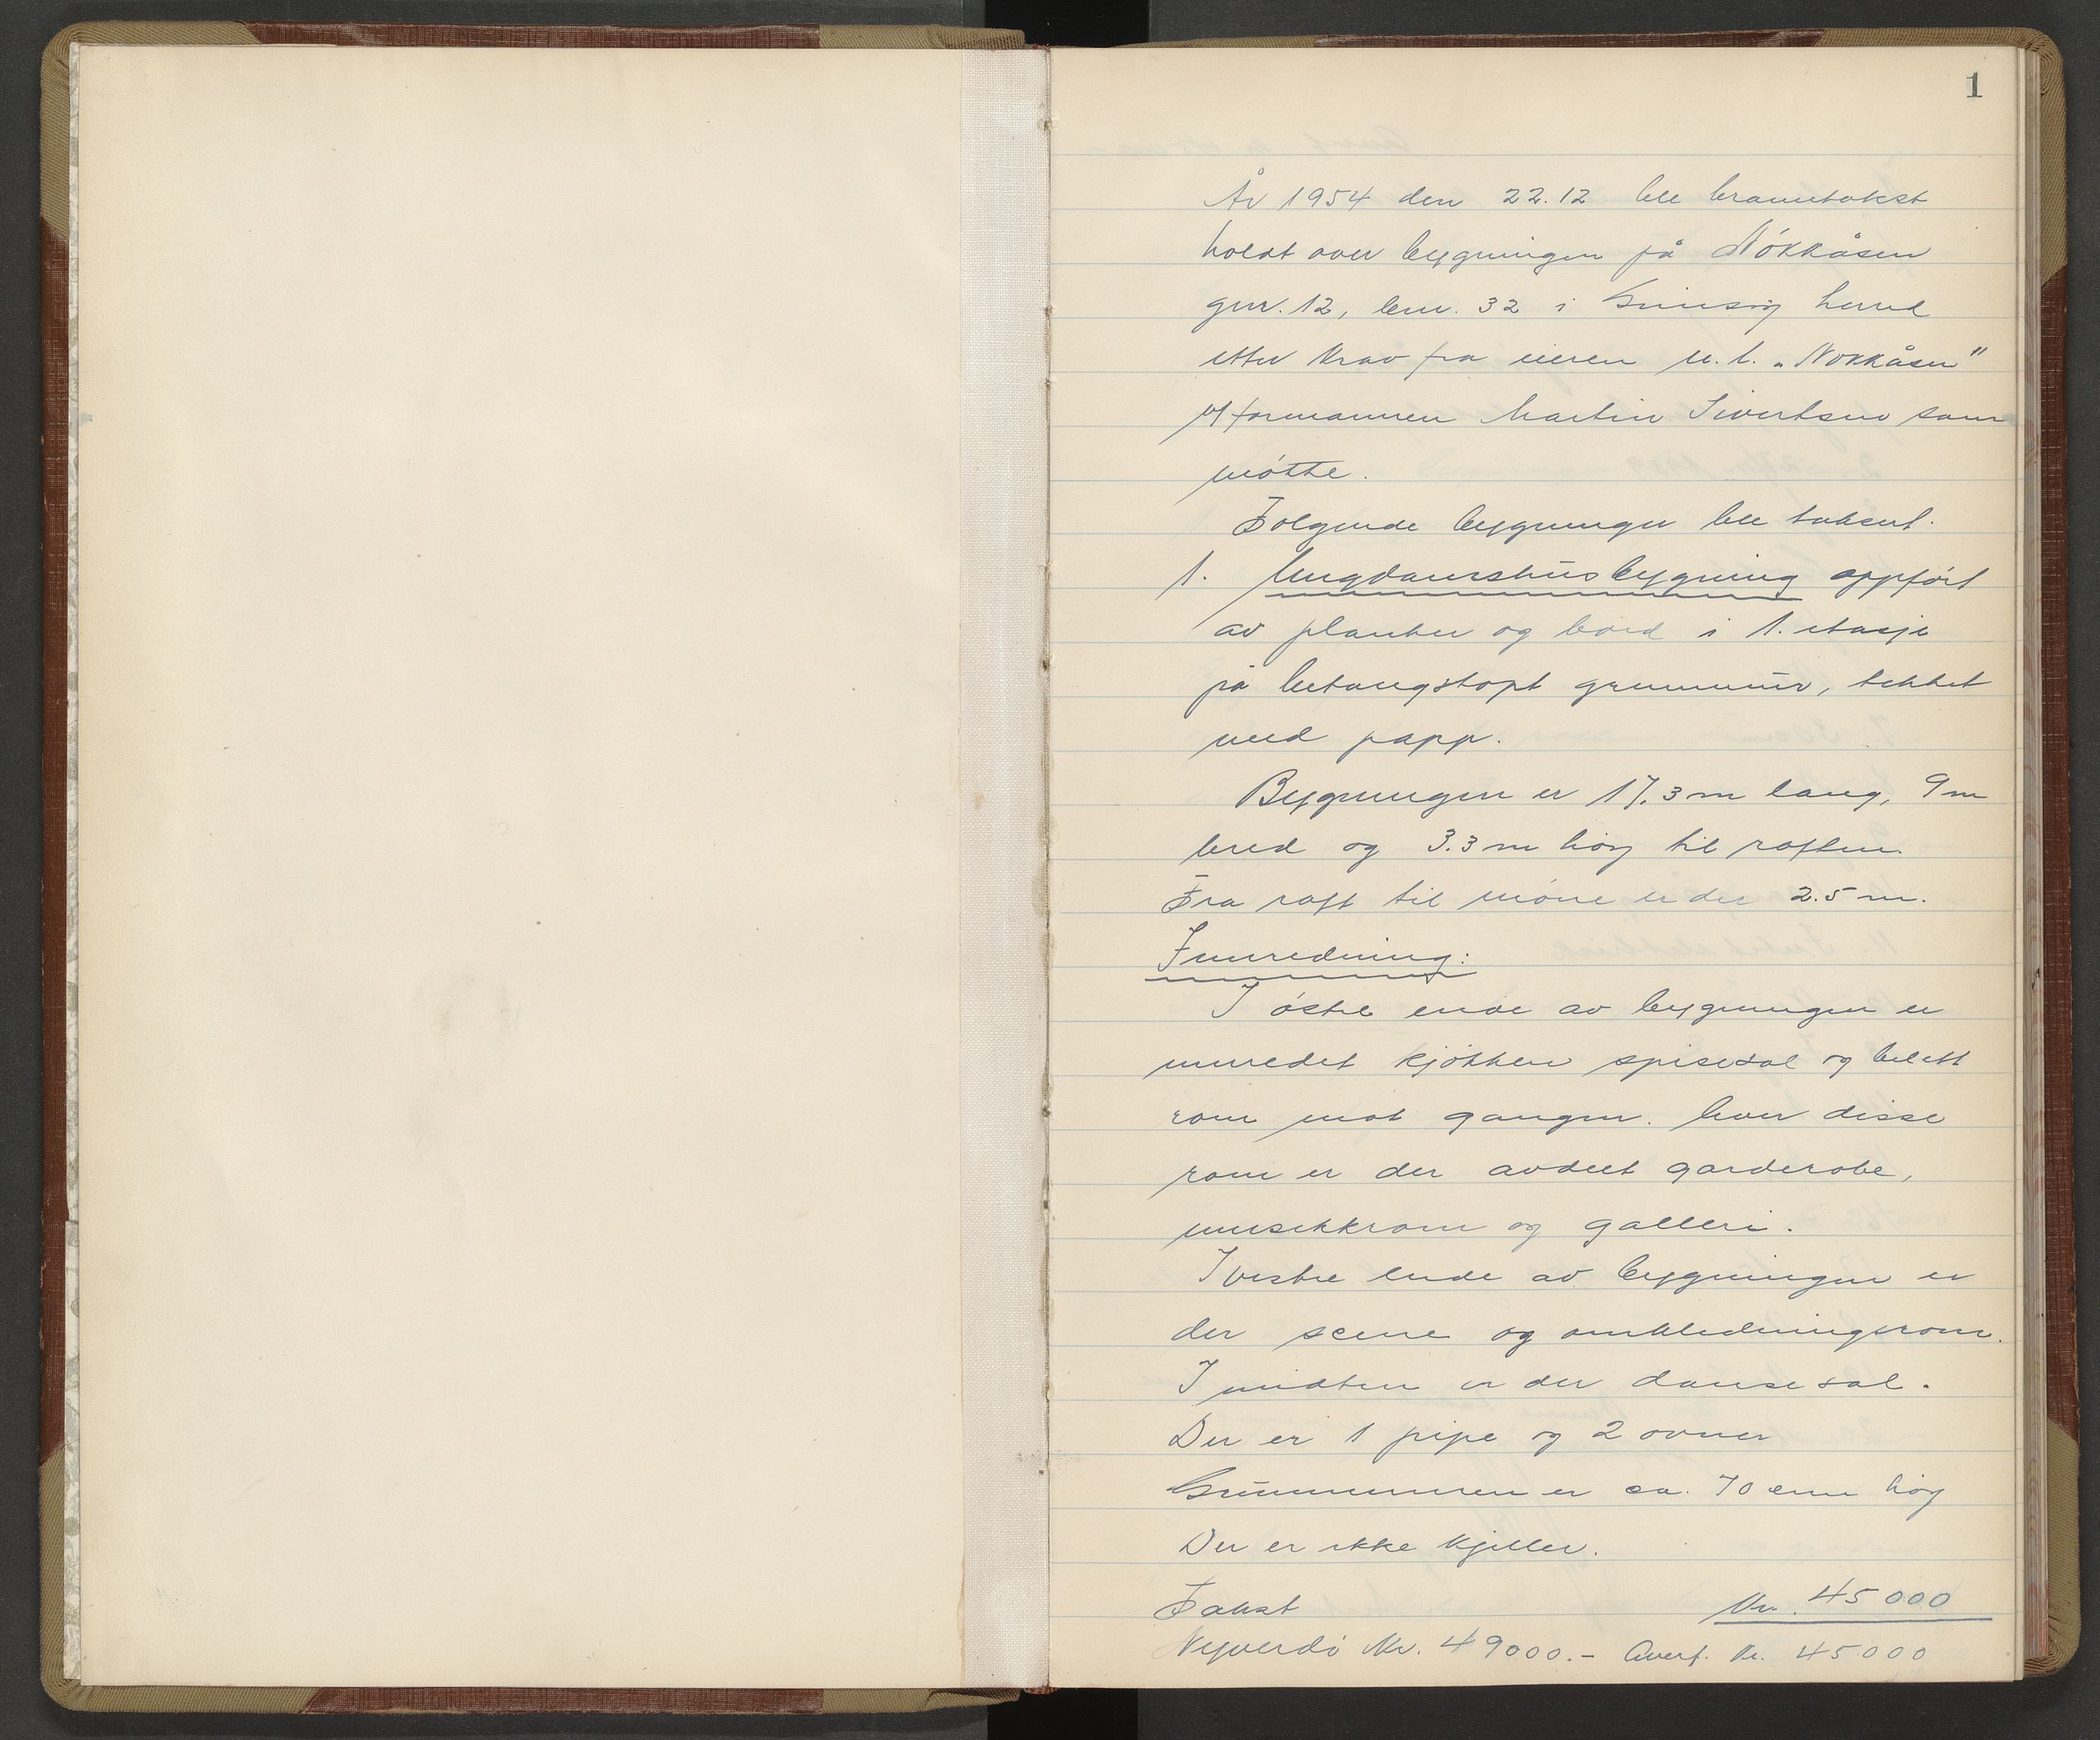 1
År 1954 den 22.12 ble branntakst
holdt over bygningen på Nökkåsen
gnr. 12, bnr. 32 i Grinsøy herred
etter krav fra eieren u.l. „Nökkåsen"
v/ formannen Martin Sivertsen som
mötte.
Følgende bygninger ble taksert.
1. Ungdomshusbygning oppfört
av planker og bord i 1. etasje
på betongstöpt grunnmur, tekket
med papp.
Bygningen er 17.3 m lang, 9 m
bred og 3.3 m höy til raften.
Fra raft til möne er der 2.5 m.
Innredning:
I östre ende av bygningen er
innredet kjökken spisesal og billett
rom mot gangen. Over disse
rom er der avdelt garderobe,
musikkrom og galleri.
I vestre ende av bygningen er
der scene og omkledningsrom.
I midten er der dansesal.
Der er 1 pipe og 2 ovner
Grunnmuren er ca. 70 cm höy
Der er ikke kjeller.
Takst Kr. 45000
Nyverdi Kr. 49000.- Avert. Kr. 45000